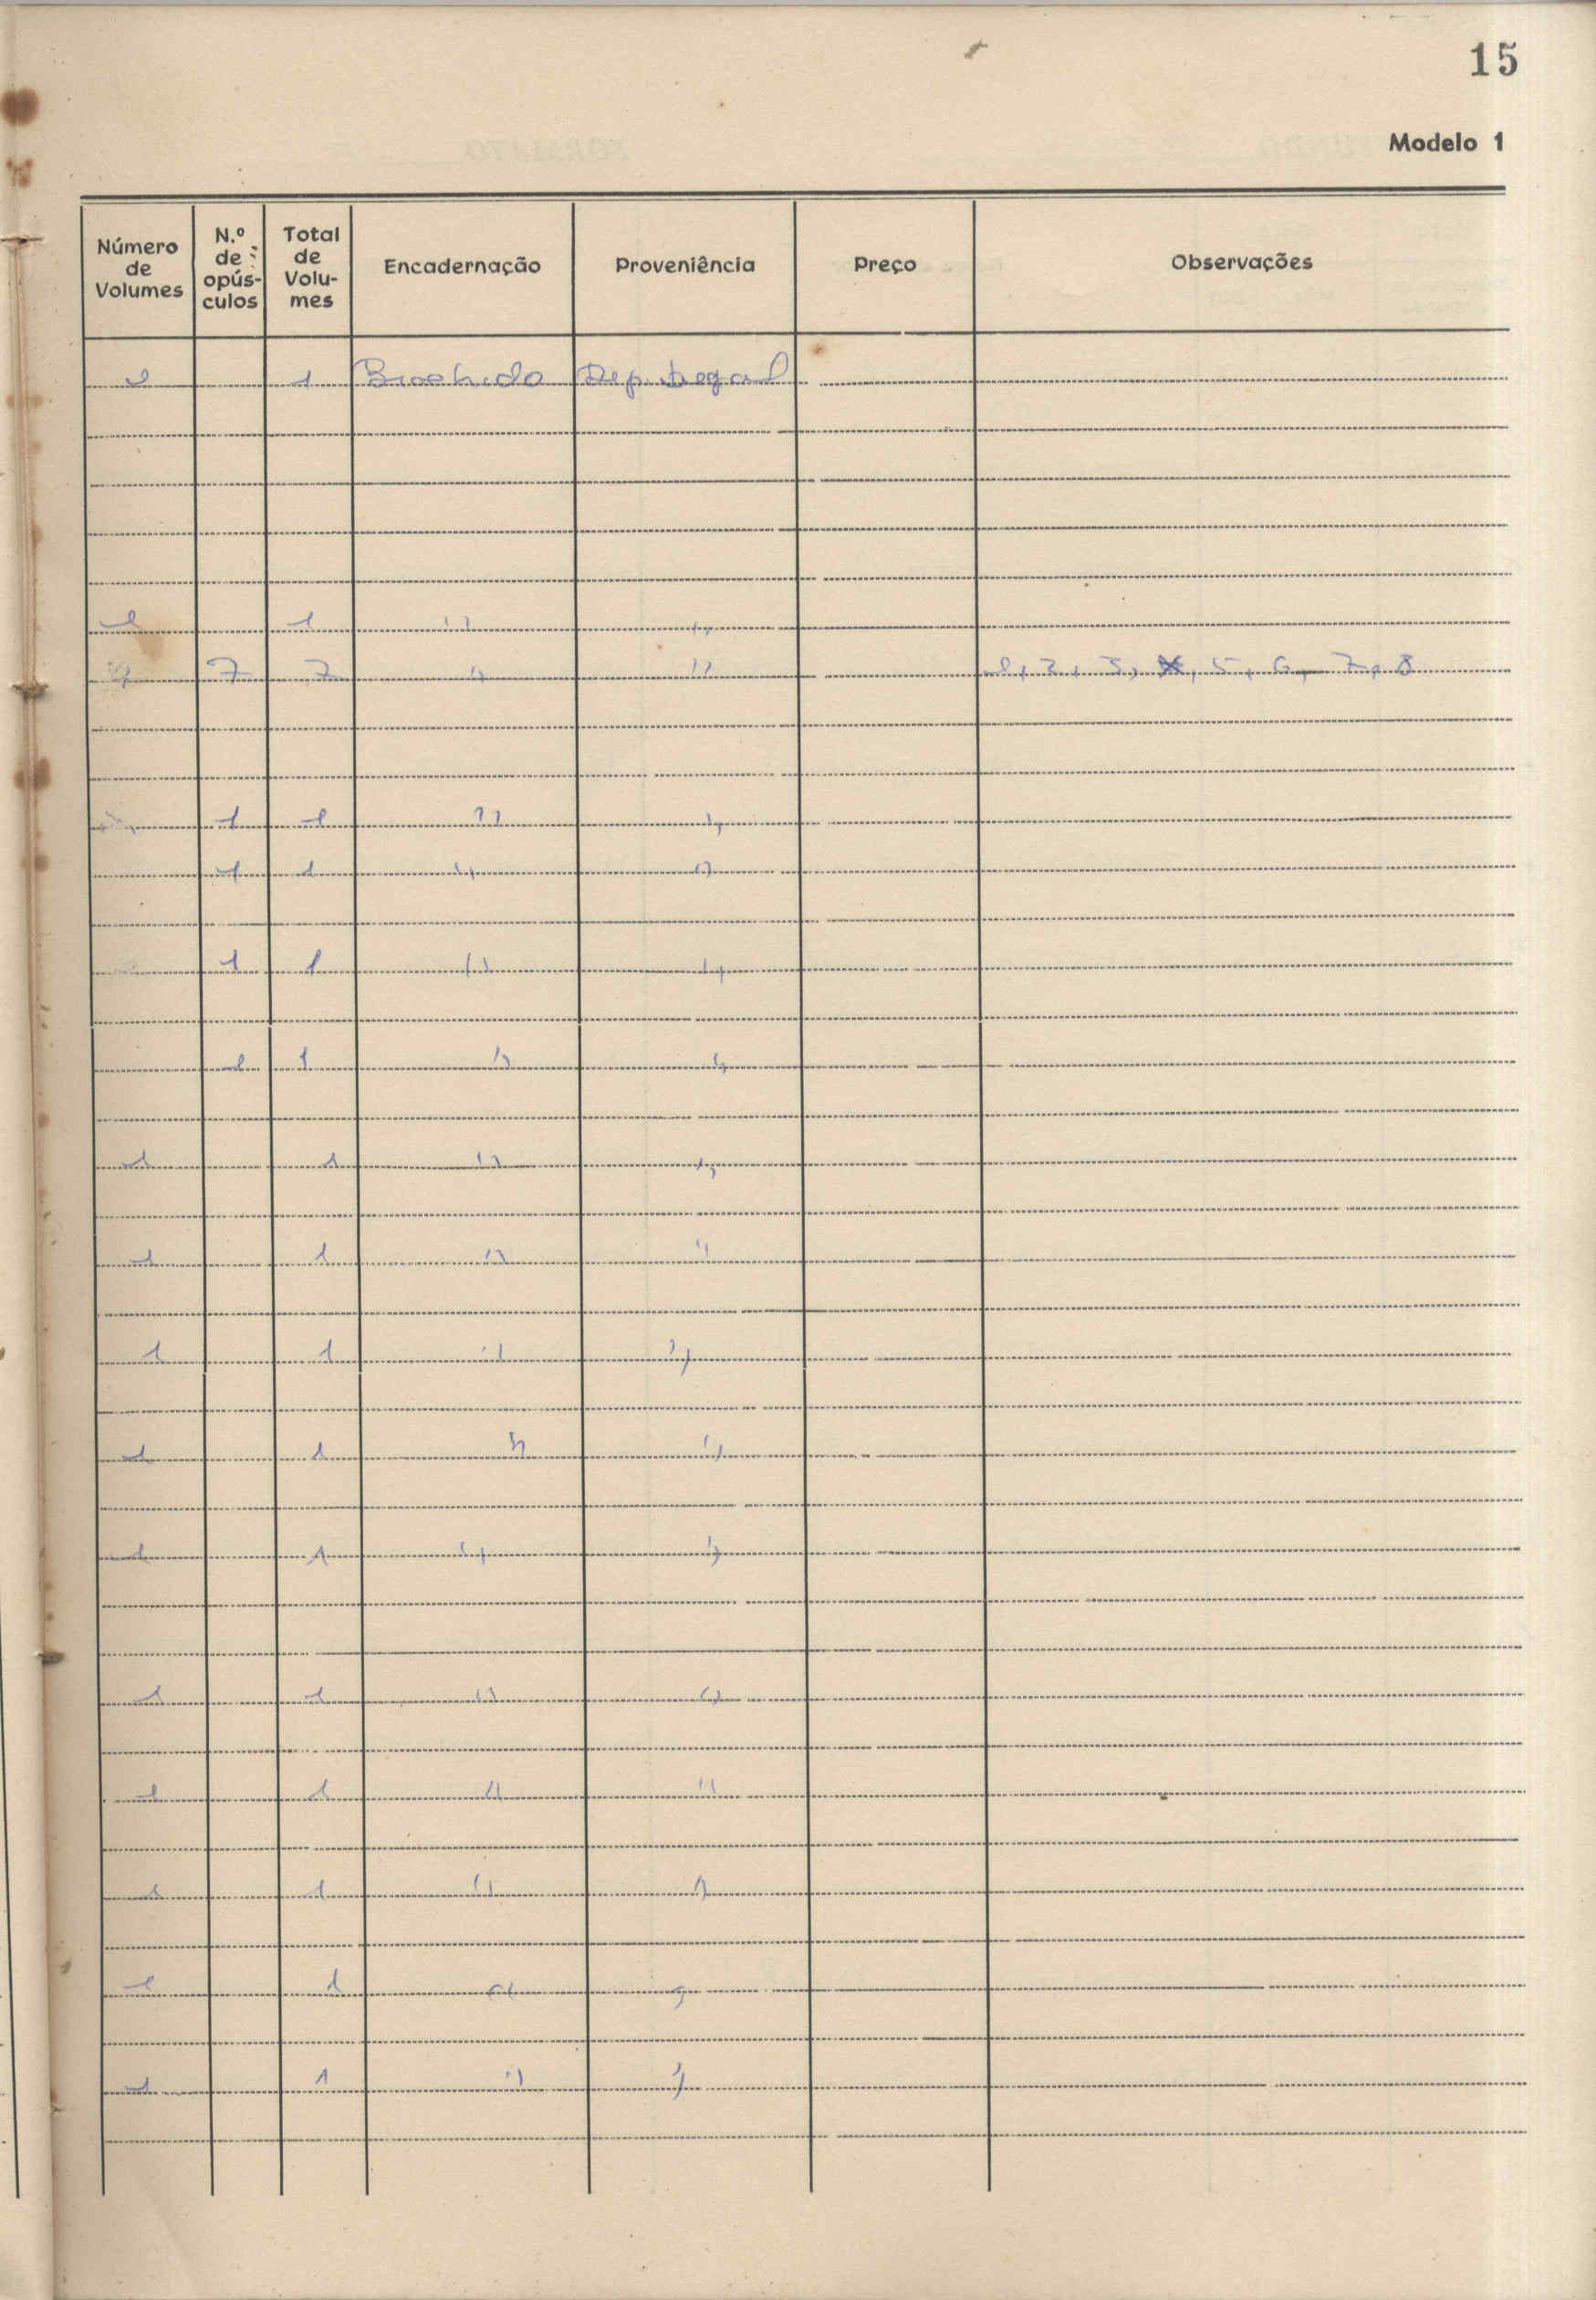 15
Modelo 1
Número de Volumes | N.º de opús-culos | Total de Volu-mes | Encadernação | Proveniência | Preço | Observações
1 | | 1 | Brochido | Dep. Legal
1 | | 1 | " | "
| 7 | 7 | " | " | | 1, 2, 3, 5, 6, 7, 8
| 1 | 1 | " | "
| 1 | 1 | " | "
| 1 | 1 | " | "
| 1 | 1 | " | "
1 | | 1 | " | "
1 | | 1 | " | "
1 | | 1 | " | "
1 | | 1 | " | "
1 | | 1 | " | "
1 | | 1 | " | "
1 | | 1 | " | "
1 | | 1 | " | "
1 | | 1 | " | "
1 | | 1 | " | "